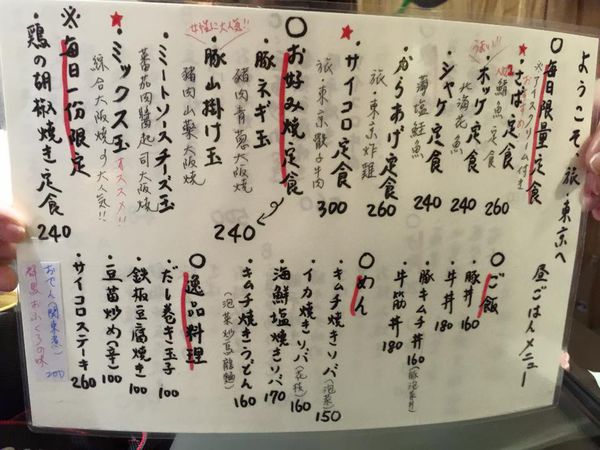 ようこそ 旅・東京へ 昼ごはんメニュー
○毎日限量定食
※アイスクリーム付き
★さば定食 260
鯖魚定食
うまい!!
ホッケ定食 240
北海花魚
シャケ定食 240
薄塩鮭魚
からあげ定食 260
旅・東京炸雞
★サイコロ定食 300
旅・東京骰子牛肉
○お好み焼定食 240
豚ネギ玉
豬肉青蔥大阪燒
女性に大人気!!
豚山掛け玉
豬肉山藥大阪燒
ミートソースチーズ玉
蕃茄肉醬起司大阪燒
★ミックス玉 オススメ!!
綜合大阪燒の大人気!!
※毎日一份限定
鶏の胡椒焼き定食 240
○ご飯
豚丼 160
牛丼 180
豚キムチ丼 160
(豚泡菜丼)
牛筋丼 180
○めん
キムチ焼きソバ(泡菜) 150
イカ焼きソバ(花枝) 160
海鮮塩焼きソバ 170
キムチ焼きうどん 160
(泡菜炒烏龍麵)
○逸品料理
だし巻き玉子 100
鉄板豆腐焼き 100
豆苗炒め(辛) 100
サイコロステーキ 260
おでん(関東煮) 200
おふくろの味